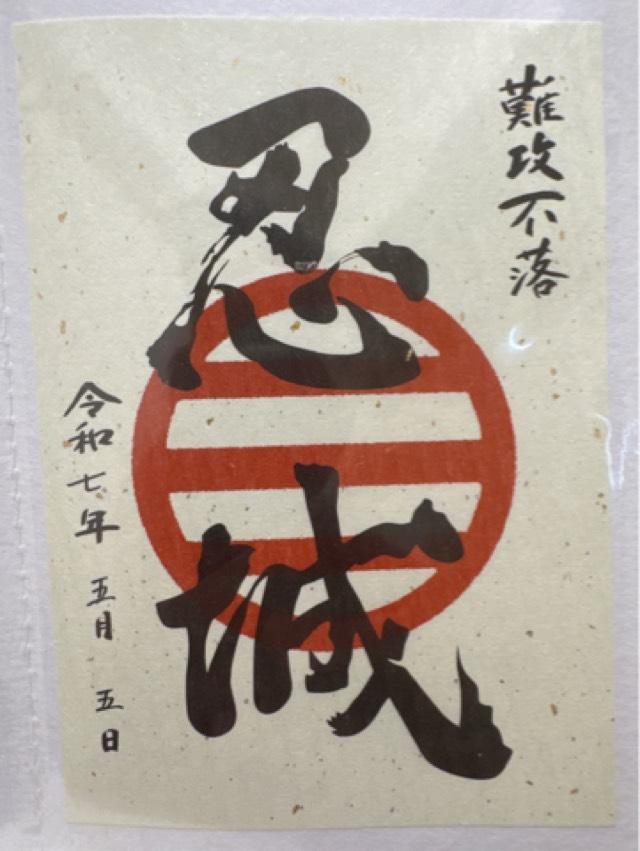 難攻不落
忍城
令和七年 五月 五日